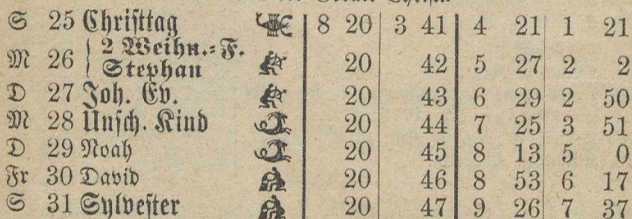 S 25 Christtag 8 20 3 41 4 21 1 21
M 26 { 2 Weihn.=F. Stephan 20 42 5 27 2 2
D 27 Joh. Ev. 20 43 6 29 2 50
M 28 Unsch. Kind 20 44 7 25 3 51
D 29 Noah 20 45 8 13 5 0
Fr 30 David 20 46 8 53 6 17
S 31 Sylvester 20 47 9 26 7 37